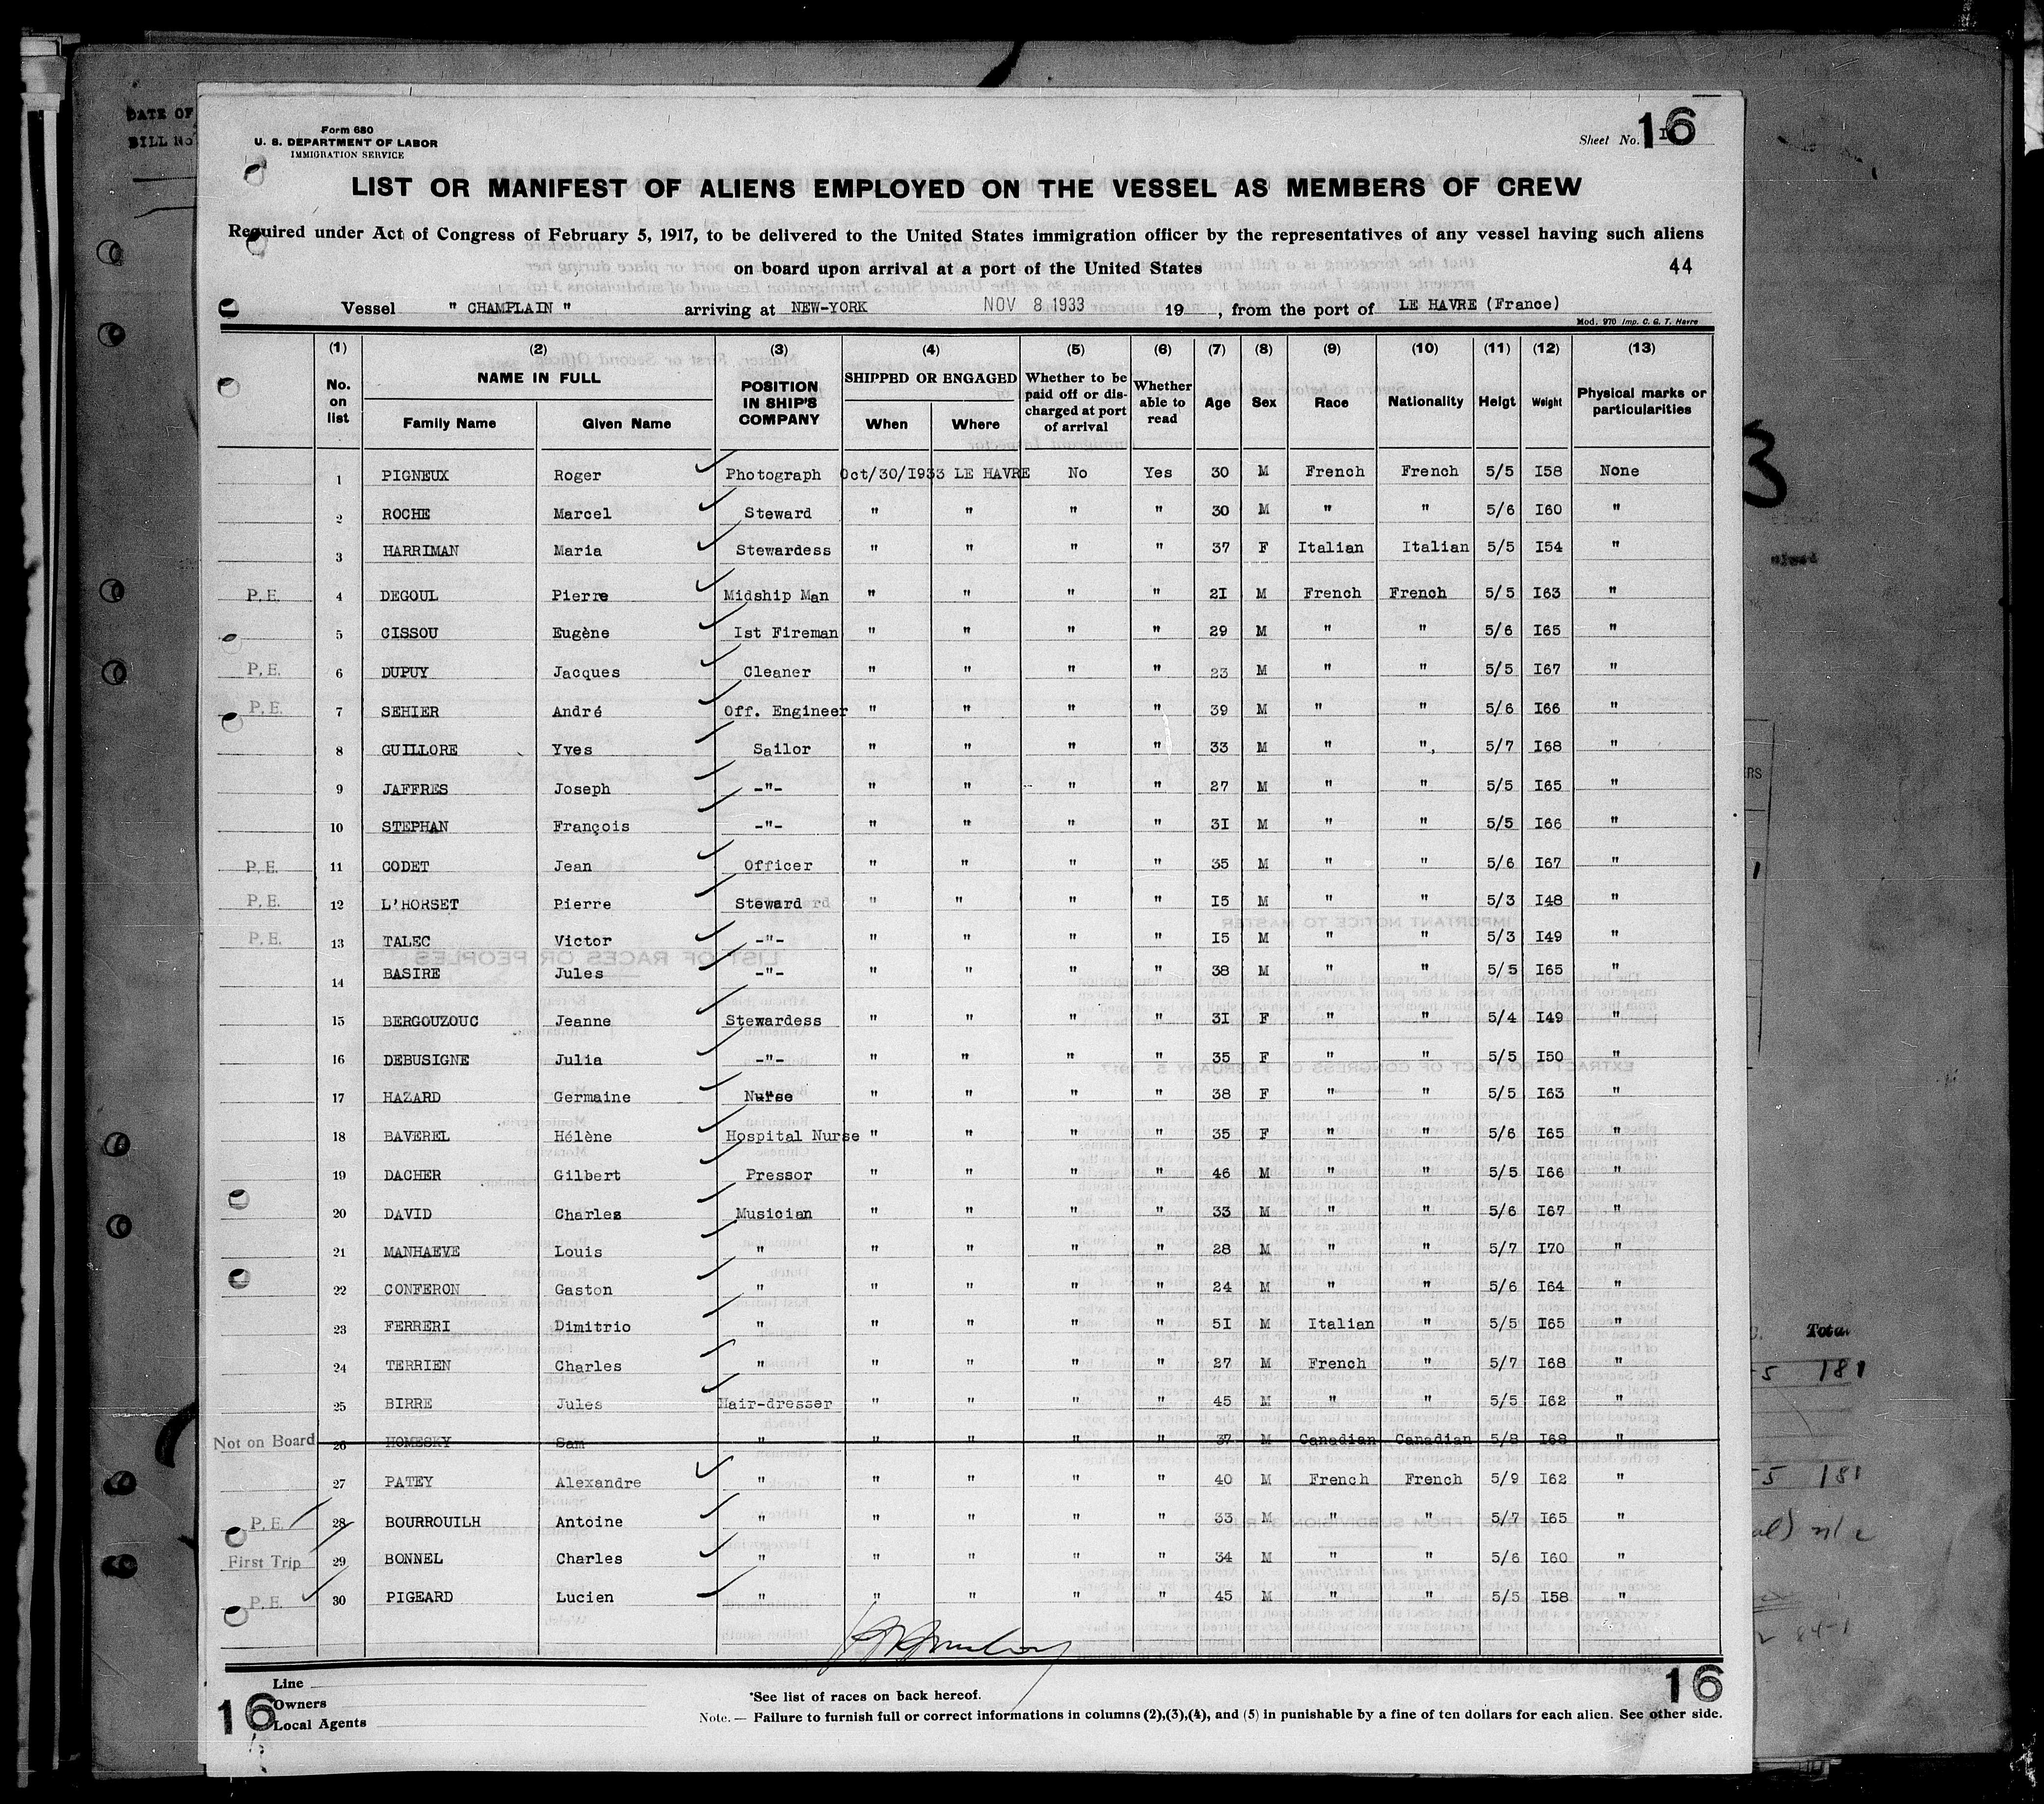 DATE OF
BILL No
Form 680
U. S. DEPARTMENT OF LABOR
IMMIGRATION SERVICE
Sheet No. 16
LIST OR MANIFEST OF ALIENS EMPLOYED ON THE VESSEL AS MEMBERS OF CREW
Required under Act of Congress of February 5, 1917, to be delivered to the United States immigration officer by the representatives of any vessel having such aliens
on board upon arrival at a port of the United States 44
Vessel " CHAMPLAIN " arriving at NEW-YORK NOV 8 1933 19 , from the port of LE HAVRE (France)
Mod. 970 Imp. C. G. T. Havre
(1) (2) (3) (4) (5) (6) (7) (8) (9) (10) (11) (12) (13)
No. on list NAME IN FULL Family Name Given Name POSITION IN SHIP'S COMPANY SHIPPED OR ENGAGED When Where Whether to be paid off or discharged at port of arrival Whether able to read Age Sex Race Nationality Heigt Weight Physical marks or particularities
1 PIGNEUX Roger Photograph Oct/30/I933 LE HAVRE No Yes 30 M French French 5/5 I58 None
2 ROCHE Marcel Steward " " " " 30 M " " 5/6 I60 "
3 HARRIMAN Maria Stewardess " " " " 37 F Italian Italian 5/5 I54 "
P.E. 4 DEGOUL Pierre Midship Man " " " " 2I M French French 5/5 I63 "
5 CISSOU Eugène Ist Fireman " " " " 29 M " " 5/6 I65 "
P.E. 6 DUPUY Jacques Cleaner " " " " 23 M " " 5/5 I67 "
P.E. 7 SEHIER André Off. Engineer " " " " 39 M " " 5/6 I66 "
8 GUILLORE Yves Sailor " " " " 33 M " " 5/7 I68 "
9 JAFFRES Joseph -"- " " " " 27 M " " 5/5 I65 "
10 STEPHAN François -"- " " " " 3I M " " 5/5 I66 "
P.E. 11 CODET Jean Officer " " " " 35 M " " 5/6 I67 "
P.E. 12 L'HORSET Pierre Steward " " " " I5 M " " 5/3 I48 "
P.E. 13 TALEC Victor -"- " " " " I5 M " " 5/3 I49 "
14 BASIRE Jules -"- " " " " 38 M " " 5/5 I65 "
15 BERGOUZOUC Jeanne Stewardess " " " " 3I F " " 5/4 I49 "
16 DEBUSIGNE Julia -"- " " " " 35 F " " 5/5 I50 "
17 HAZARD Germaine Nurse " " " " 38 F " " 5/5 I63 "
18 BAVEREL Hélène Hospital Nurse " " " " 35 F " " 5/6 I65 "
19 DACHER Gilbert Pressor " " " " 46 M " " 5/5 I66 "
20 DAVID Charles Musician " " " " 33 M " " 5/6 I67 "
21 MANHAEVE Louis " " " " " 28 M " " 5/7 I70 "
22 CONFERON Gaston " " " " " 24 M " " 5/6 I64 "
23 FERRERI Dimitrio " " " " " 5I M Italian " 5/5 I65 "
24 TERRIEN Charles " " " " " 27 M French " 5/7 I68 "
25 BIRRE Jules Hair-dresser " " " " 45 M " " 5/5 I62 "
Not on Board 26 HOMESKY Sam " " " " " 37 M Canadian Canadian 5/8 I68 "
27 PATEY Alexandre " " " " " 40 M French French 5/9 I62 "
P.E. 28 BOURROUILH Antoine " " " " " 33 M " " 5/7 I65 "
First Trip 29 BONNEL Charles " " " " " 34 M " " 5/6 I60 "
P.E. 30 PIGEARD Lucien " " " " " 45 M " " 5/5 I58 "
Line
Owners
Local Agents
16
*See list of races on back hereof.
Note. — Failure to furnish full or correct informations in columns (2),(3),(4), and (5) in punishable by a fine of ten dollars for each alien. See other side.
16
Total
181
181